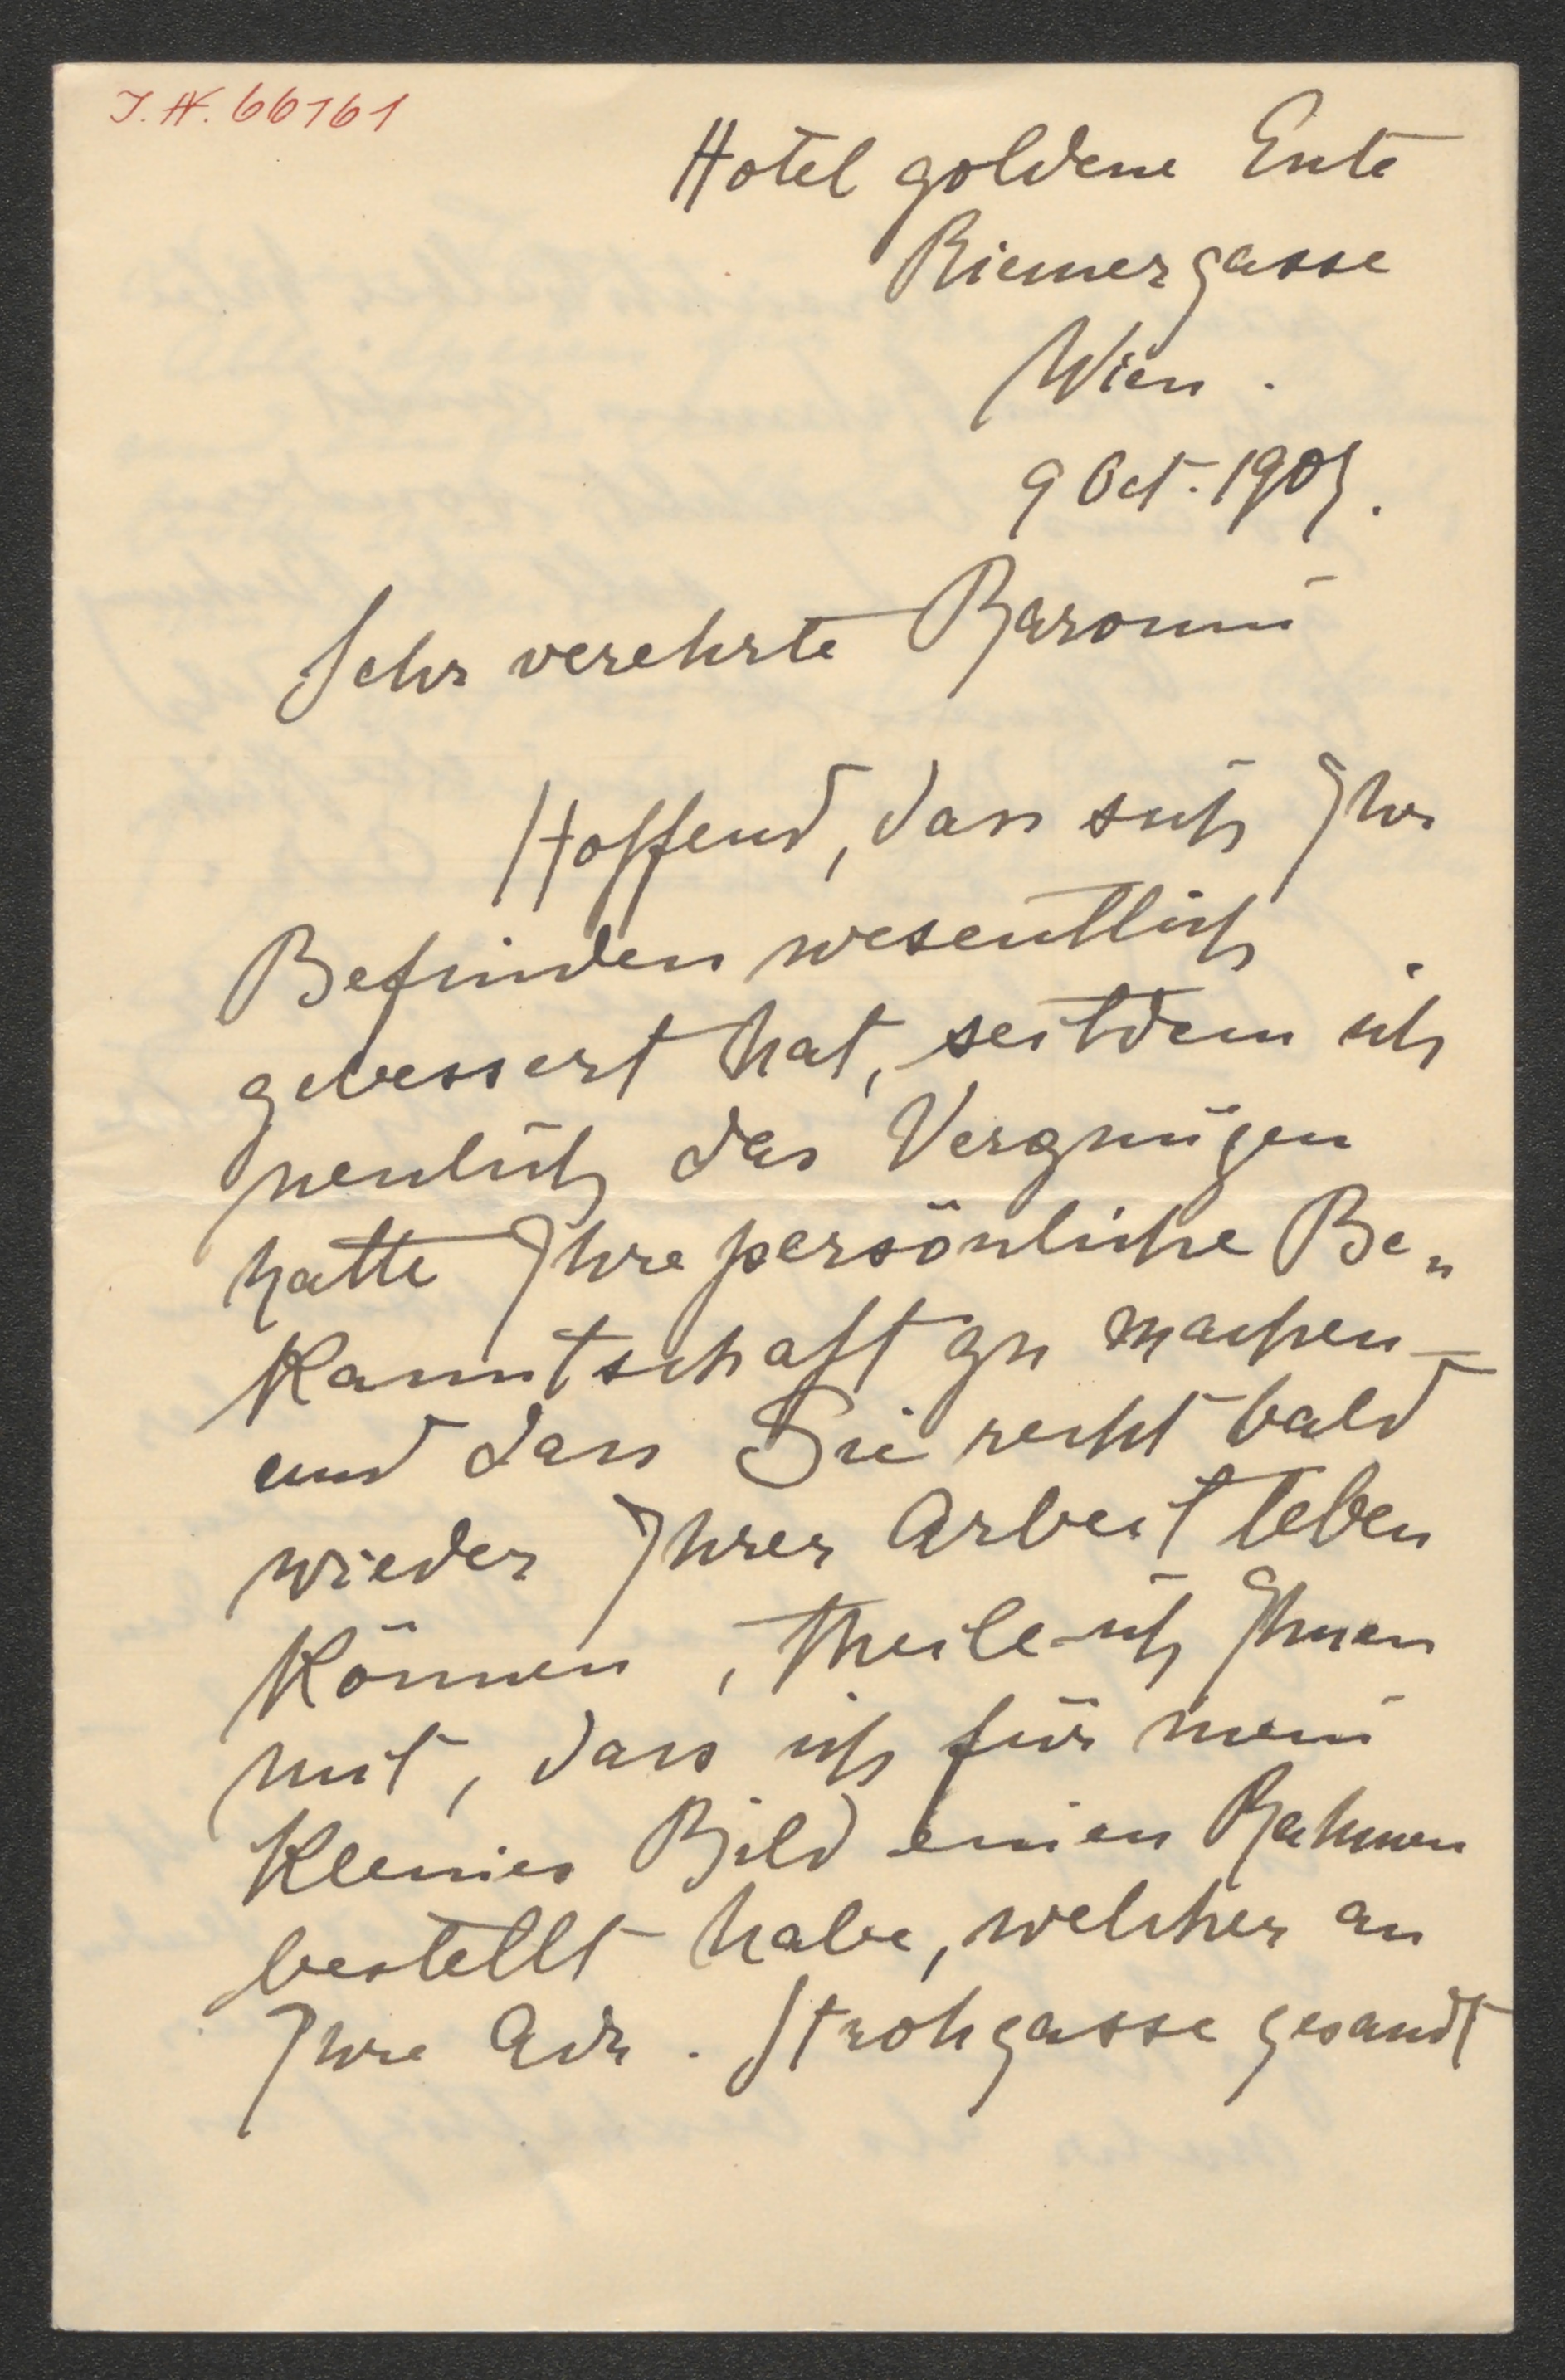 J.N. 66161
Hotel goldene Ente
Riemergasse
Wien.
9 Oct. 1905.
Sehr verehrte Baronin
Hoffend, dass sich Ihr
Befinden wesentlich
gebessert hat, seitdem ich
neulich das Vergnügen
hatte Ihre persönliche Be„
kanntschaft zu machen –
und dass Sie recht bald
wieder Ihrer Arbeit leben
können, theile ich Ihnen
mit, dass ich für mein
kleines Bild einen Rahmen
bestellt habe, welcher an
Ihre Adr. Strohgasse gesandt